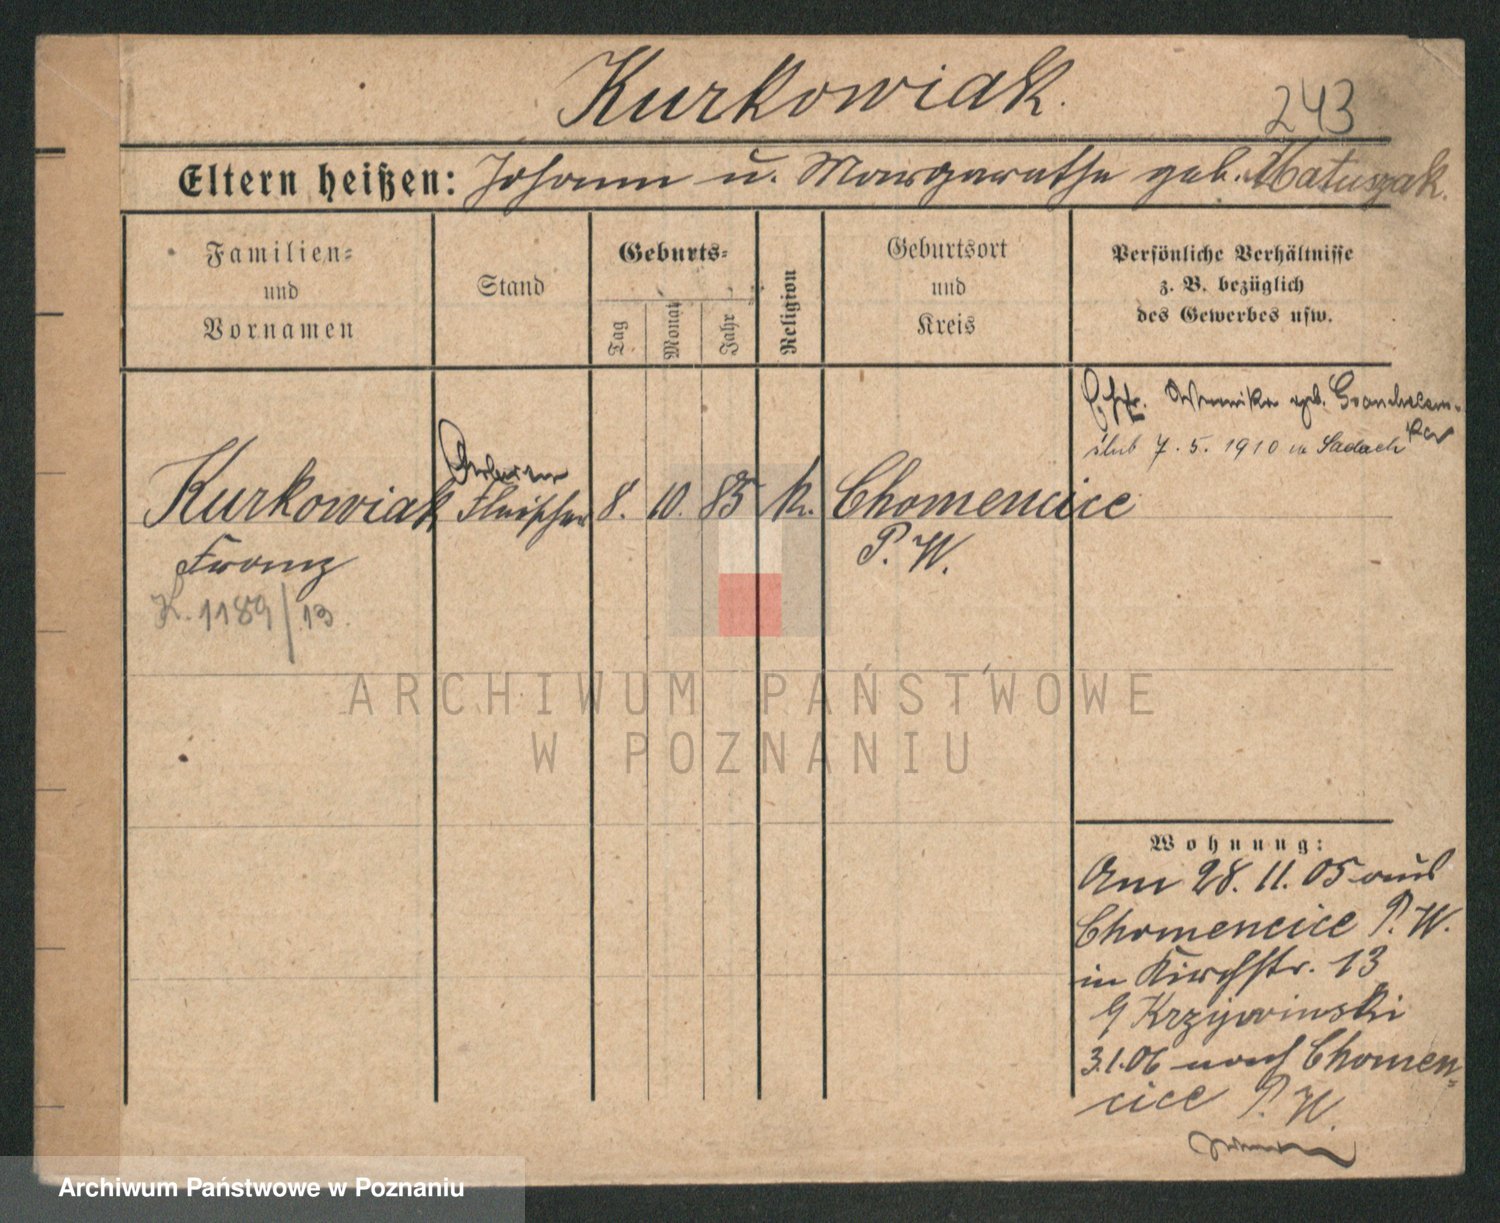 Kurkowiak.
243
Eltern heißen: Johann u. Margarethe geb. Matuszak.
Familien=
und
Vornamen
Stand
Geburts=
Tag
Monat
Jahr
Religion
Geburtsort
und
Kreis
Persönliche Verhältnisse
z. B. bezüglich
des Gewerbes usw.
Ehefr. geb.
ślub 7. 5. 1910 w Sadach
Kurkowiak Fleischer 8. 10. 85 k. Chomencice
Franz P. W.
K. 1189/13.
Wohnung:
Am 28. 11. 05 aus
Chomencice P. W.
in Kirchstr. 13
Krzywinski
3.1.06 nach Chomen=
cice P. W.
ARCHIWUM PAŃSTWOWE
W POZNANIU
Archiwum Państwowe w Poznaniu